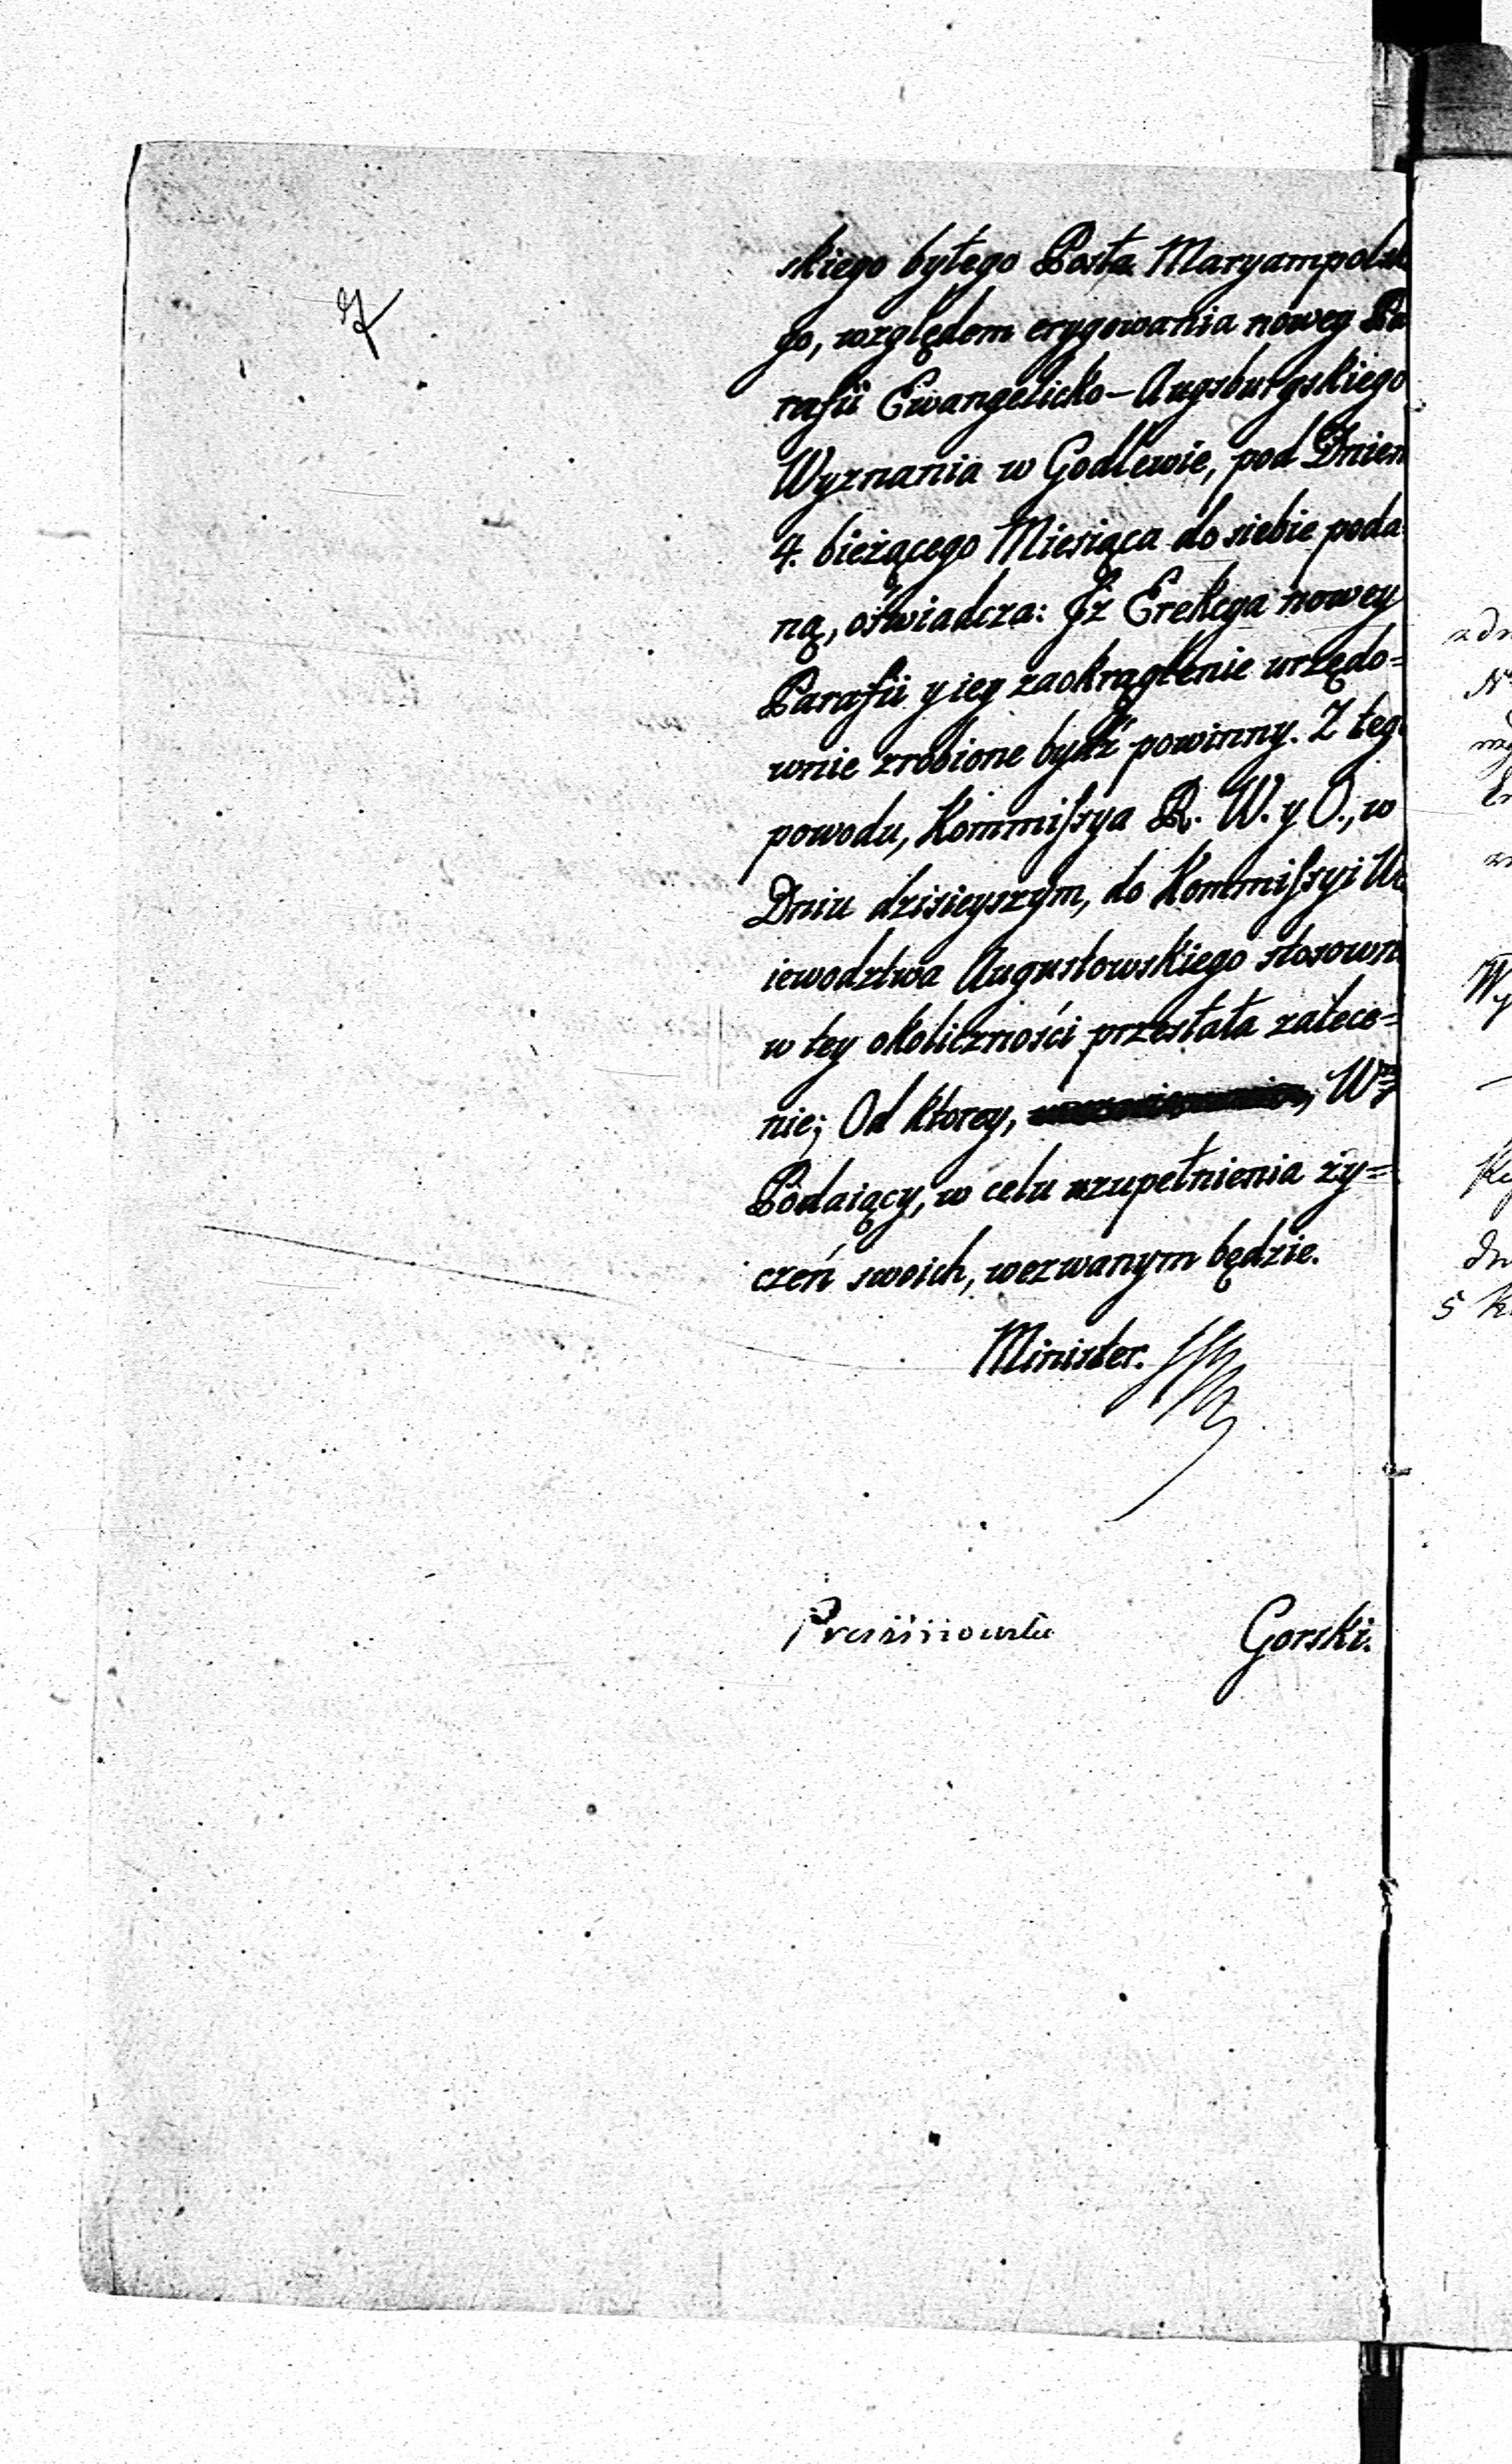 7
skiego byłego Posła Maryampolsk
go, względem erygowania nowey Pa
rafii Ewangelicko-Augsburgskiego
Wyznania w Godlewie, pod Dniem
4. bieżącego Miesiąca do siebie poda
ną, oświadcza: Iż Erekcya nowey
Parafii y iey zaokrąglenie urzędo=
wnie zrobione bydź powinny. Z tego
powodu, Kommissya R. W. y O., w
Dniu dzisieyszym, do Kommissyi Wo
iewodztwa Augustowskiego stosown
w tey okoliczności przesłała zalece=
nie; Od ktorey, W
Podaiący, w celu uzupełnienia ży=
czeń swoich, wezwanym będzie.
Minister.
Gorski.